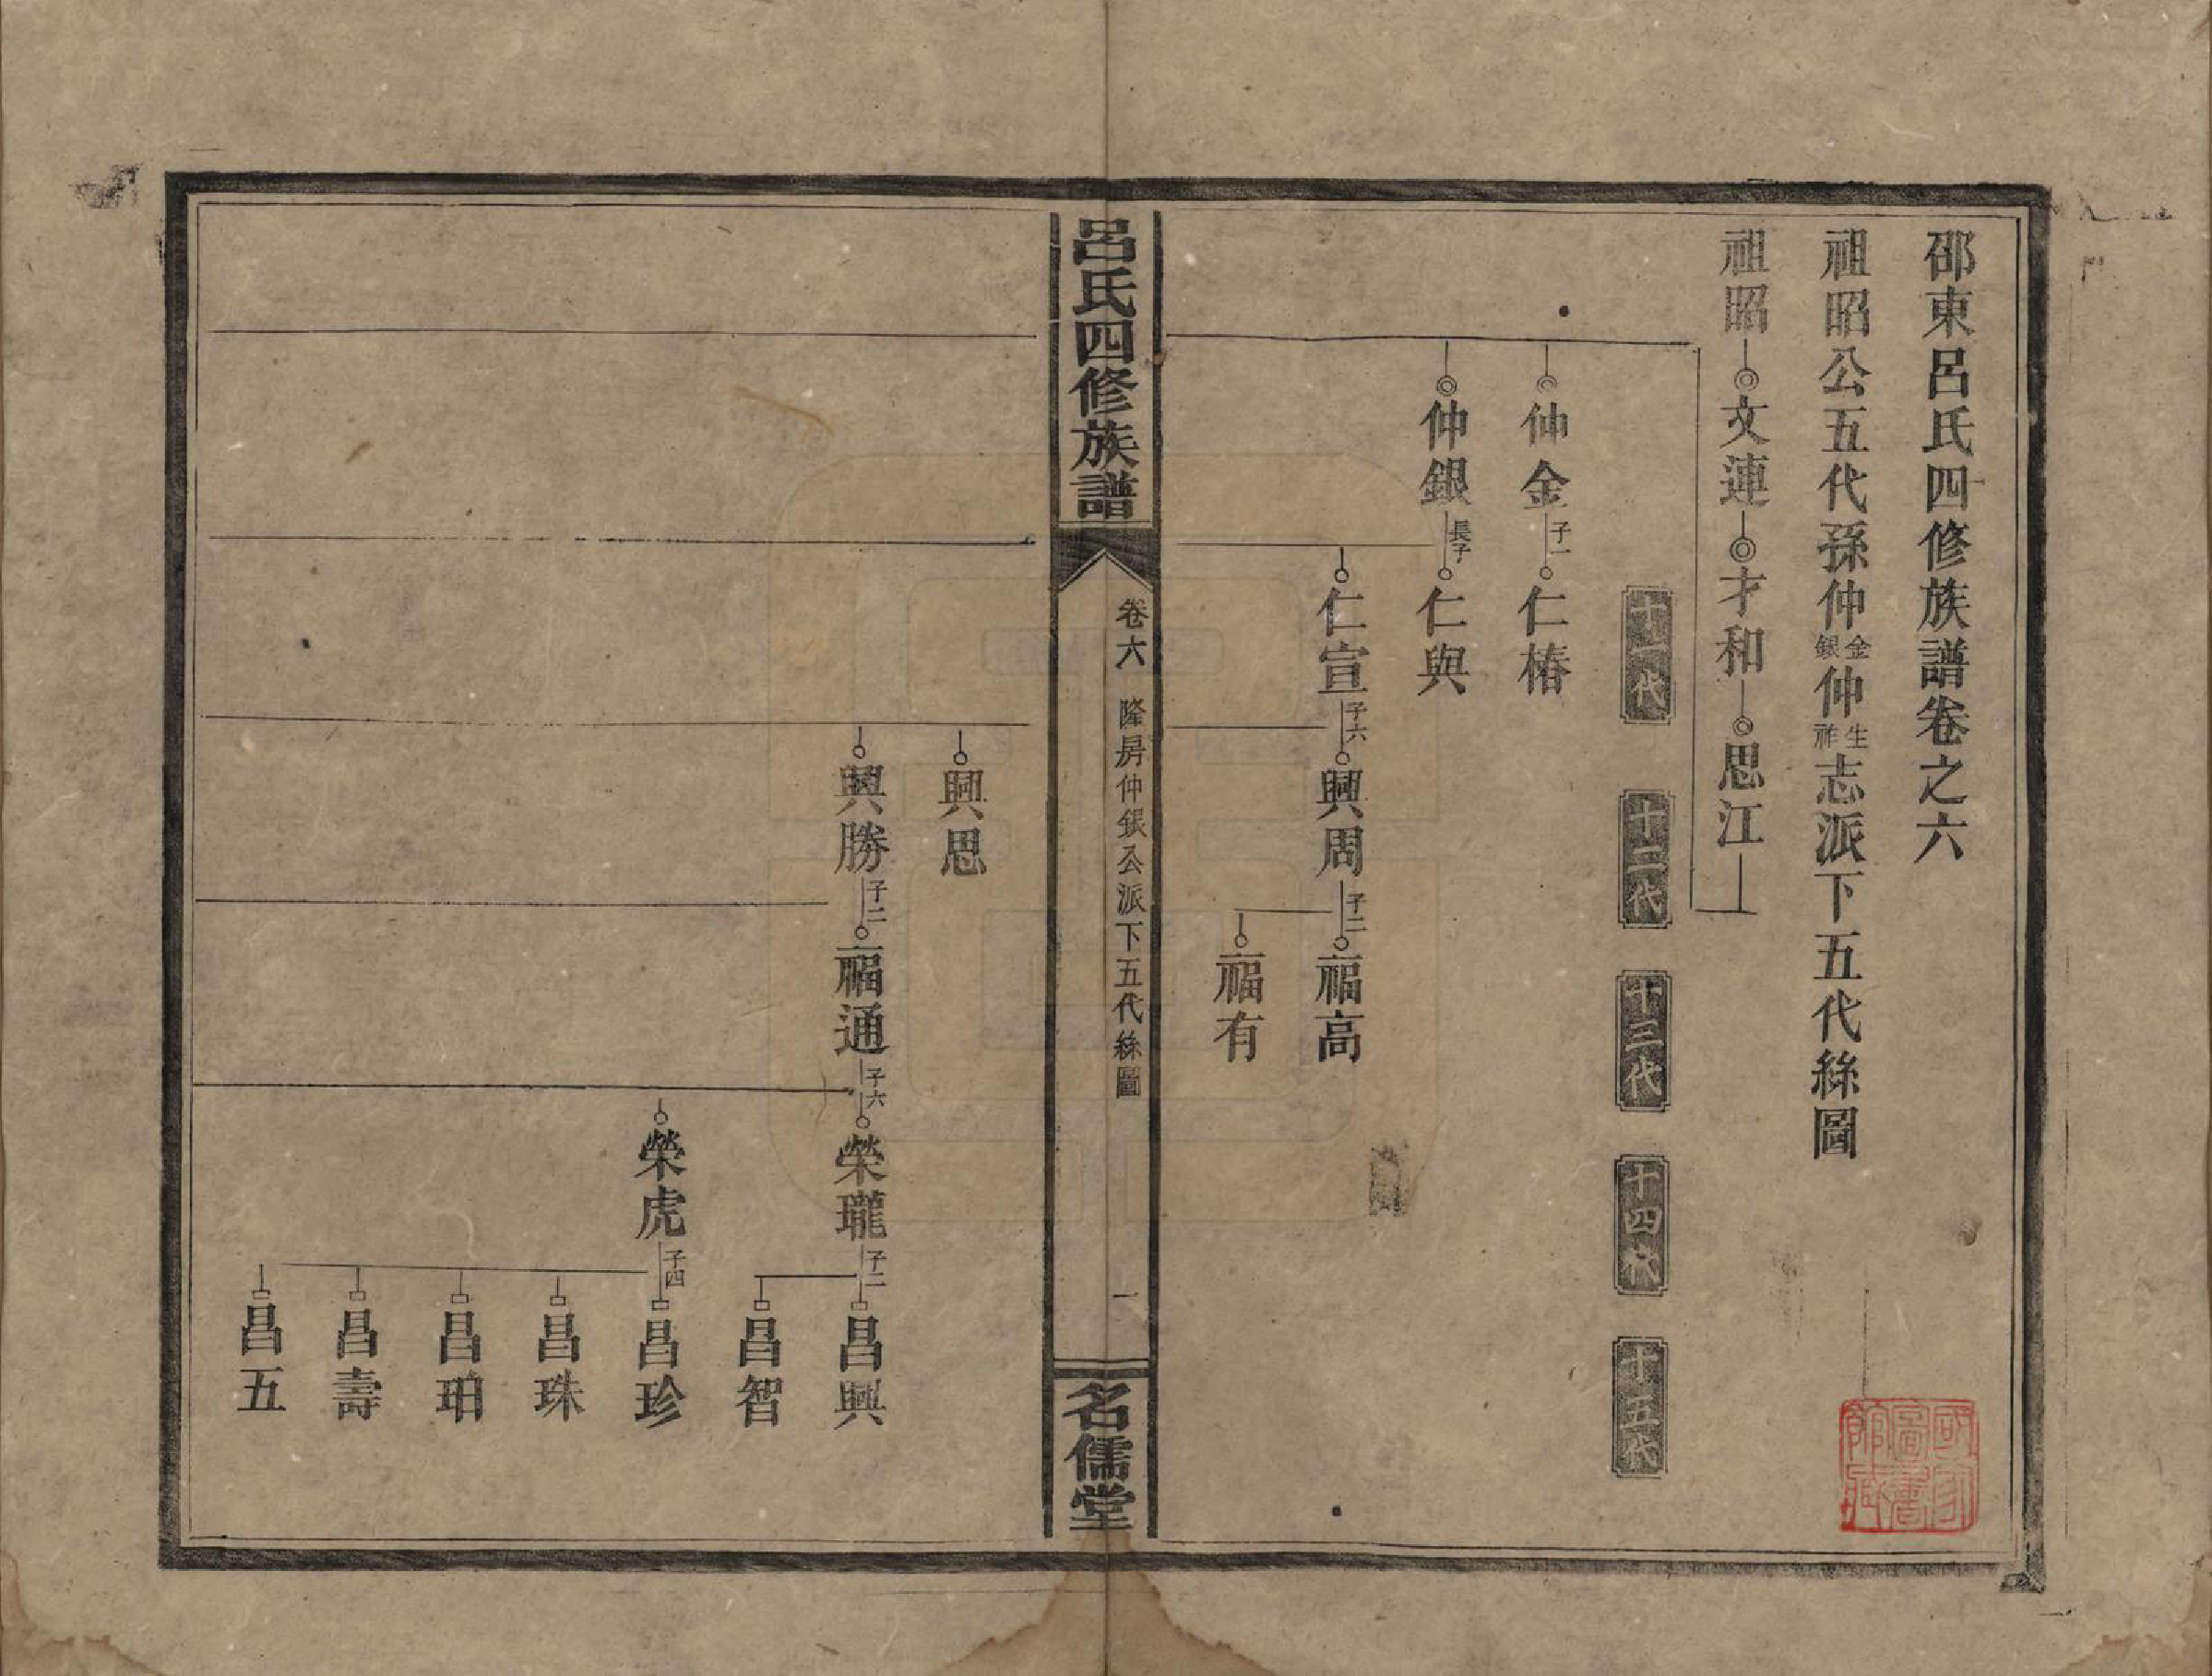 邵東呂氏四修族譜卷之六
祖昭公五代孫仲金銀仲生祚志派下五代絲圖
祖昭 文連 才和 思江
十一代 十二代 十三代 十四代 十五代
仲金 子一 仁椿
仲銀 長子 仁與
仁宣 子六 興周 子二 福高
福有
呂氏四修族譜
卷六 隆房仲銀公派下五代絲圖
一
名儒堂
興思
興勝 子二 福通 子六 榮瓏 子二 昌興
昌智
榮虎 子四 昌珍
昌珠
昌珀
昌壽
昌五
國家圖書館藏